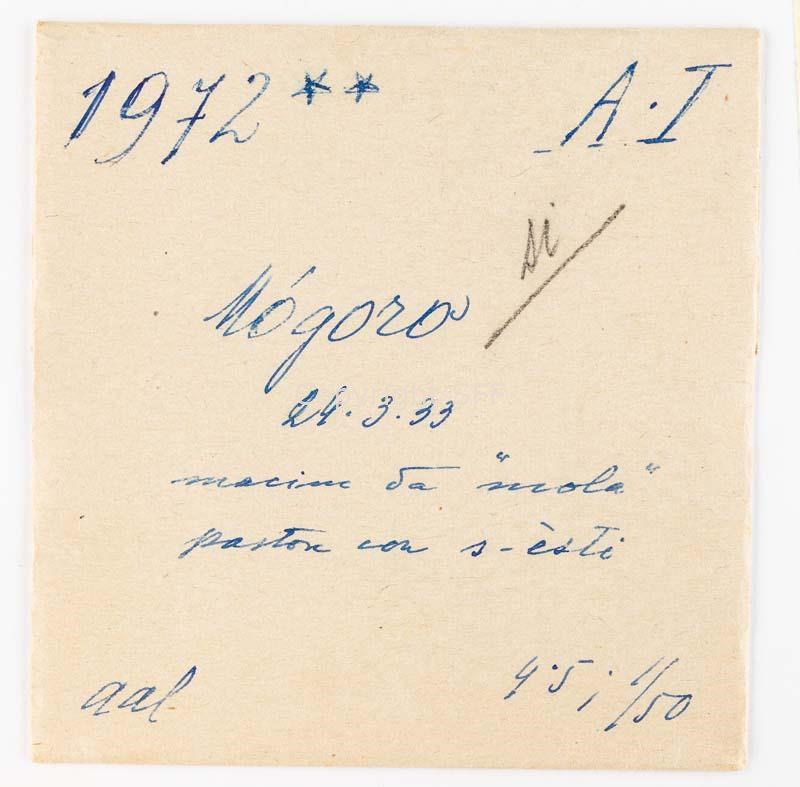 1972 ** A.I
si
Mógoro
24.3.33
macine da "mola"
pastore con s-èsti
aal 4.5; 1/50